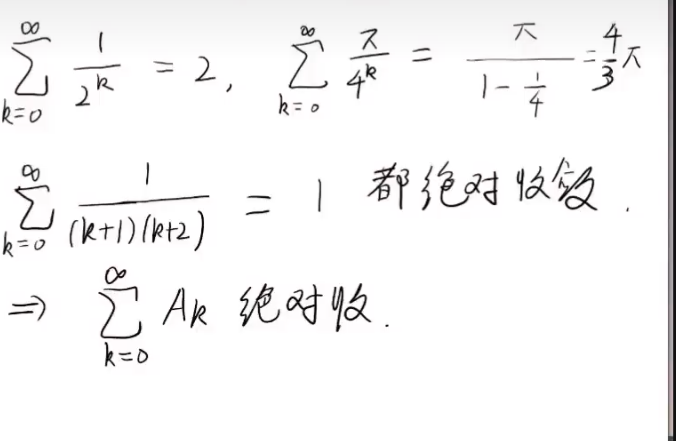 ∑_{k=0}^{∞} 1/2^k = 2, ∑_{k=0}^{∞} π/4^k = π/(1-1/4) = 4/3 π
∑_{k=0}^{∞} 1/((k+1)(k+2)) = 1 都绝对收敛.
⇒ ∑_{k=0}^{∞} A_k 绝对收.